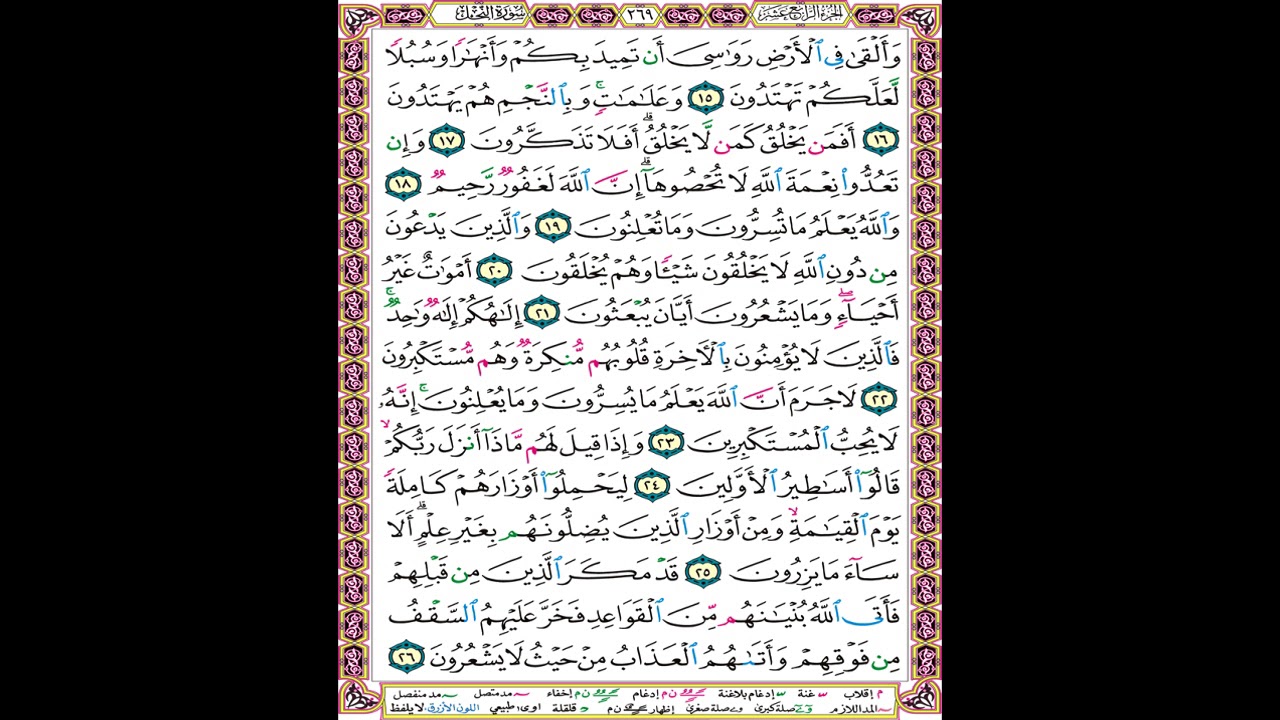 الجزء الرابع عشر ٢٦٩ سورة النحل
وَأَلْقَىٰ فِي ٱلْأَرْضِ رَوَٰسِىَ أَن تَمِيدَ بِكُمْ وَأَنْهَٰرًا وَسُبُلًا
لَّعَلَّكُمْ تَهْتَدُونَ ١٥ وَعَلَٰمَٰتٍۚ وَبِٱلنَّجْمِ هُمْ يَهْتَدُونَ
١٦ أَفَمَن يَخْلُقُ كَمَن لَّا يَخْلُقُۗ أَفَلَا تَذَكَّرُونَ ١٧ وَإِن
تَعُدُّوا۟ نِعْمَةَ ٱللَّهِ لَا تُحْصُوهَآۗ إِنَّ ٱللَّهَ لَغَفُورٌ رَّحِيمٌ ١٨
وَٱللَّهُ يَعْلَمُ مَا تُسِرُّونَ وَمَا تُعْلِنُونَ ١٩ وَٱلَّذِينَ يَدْعُونَ
مِن دُونِ ٱللَّهِ لَا يَخْلُقُونَ شَيْـًٔا وَهُمْ يُخْلَقُونَ ٢٠ أَمْوَٰتٌ غَيْرُ
أَحْيَآءٍۖ وَمَا يَشْعُرُونَ أَيَّانَ يُبْعَثُونَ ٢١ إِلَٰهُكُمْ إِلَٰهٌ وَٰحِدٌۚ
فَٱلَّذِينَ لَا يُؤْمِنُونَ بِٱلْأَخِرَةِ قُلُوبُهُم مُّنكِرَةٌ وَهُم مُّسْتَكْبِرُونَ
٢٢ لَا جَرَمَ أَنَّ ٱللَّهَ يَعْلَمُ مَا يُسِرُّونَ وَمَا يُعْلِنُونَۚ إِنَّهُۥ
لَا يُحِبُّ ٱلْمُسْتَكْبِرِينَ ٢٣ وَإِذَا قِيلَ لَهُم مَّاذَآ أَنزَلَ رَبُّكُمْۙ
قَالُوٓا۟ أَسَٰطِيرُ ٱلْأَوَّلِينَ ٢٤ لِيَحْمِلُوٓا۟ أَوْزَارَهُمْ كَامِلَةً
يَوْمَ ٱلْقِيَٰمَةِۙ وَمِنْ أَوْزَارِ ٱلَّذِينَ يُضِلُّونَهُم بِغَيْرِ عِلْمٍۗ أَلَا
سَآءَ مَا يَزِرُونَ ٢٥ قَدْ مَكَرَ ٱلَّذِينَ مِن قَبْلِهِمْ
فَأَتَى ٱللَّهُ بُنْيَٰنَهُم مِّنَ ٱلْقَوَاعِدِ فَخَرَّ عَلَيْهِمُ ٱلسَّقْفُ
مِن فَوْقِهِمْ وَأَتَىٰهُمُ ٱلْعَذَابُ مِنْ حَيْثُ لَا يَشْعُرُونَ ٢٦
م إقلاب غنة إدغام بلاغنة إدغام ن م إخفاء مد متصل مد منفصل
المد اللازم صلة كبرى صلة صغرى إظهار ن م قلقلة اوى طبيعي اللون الأزرق لا يلفظ